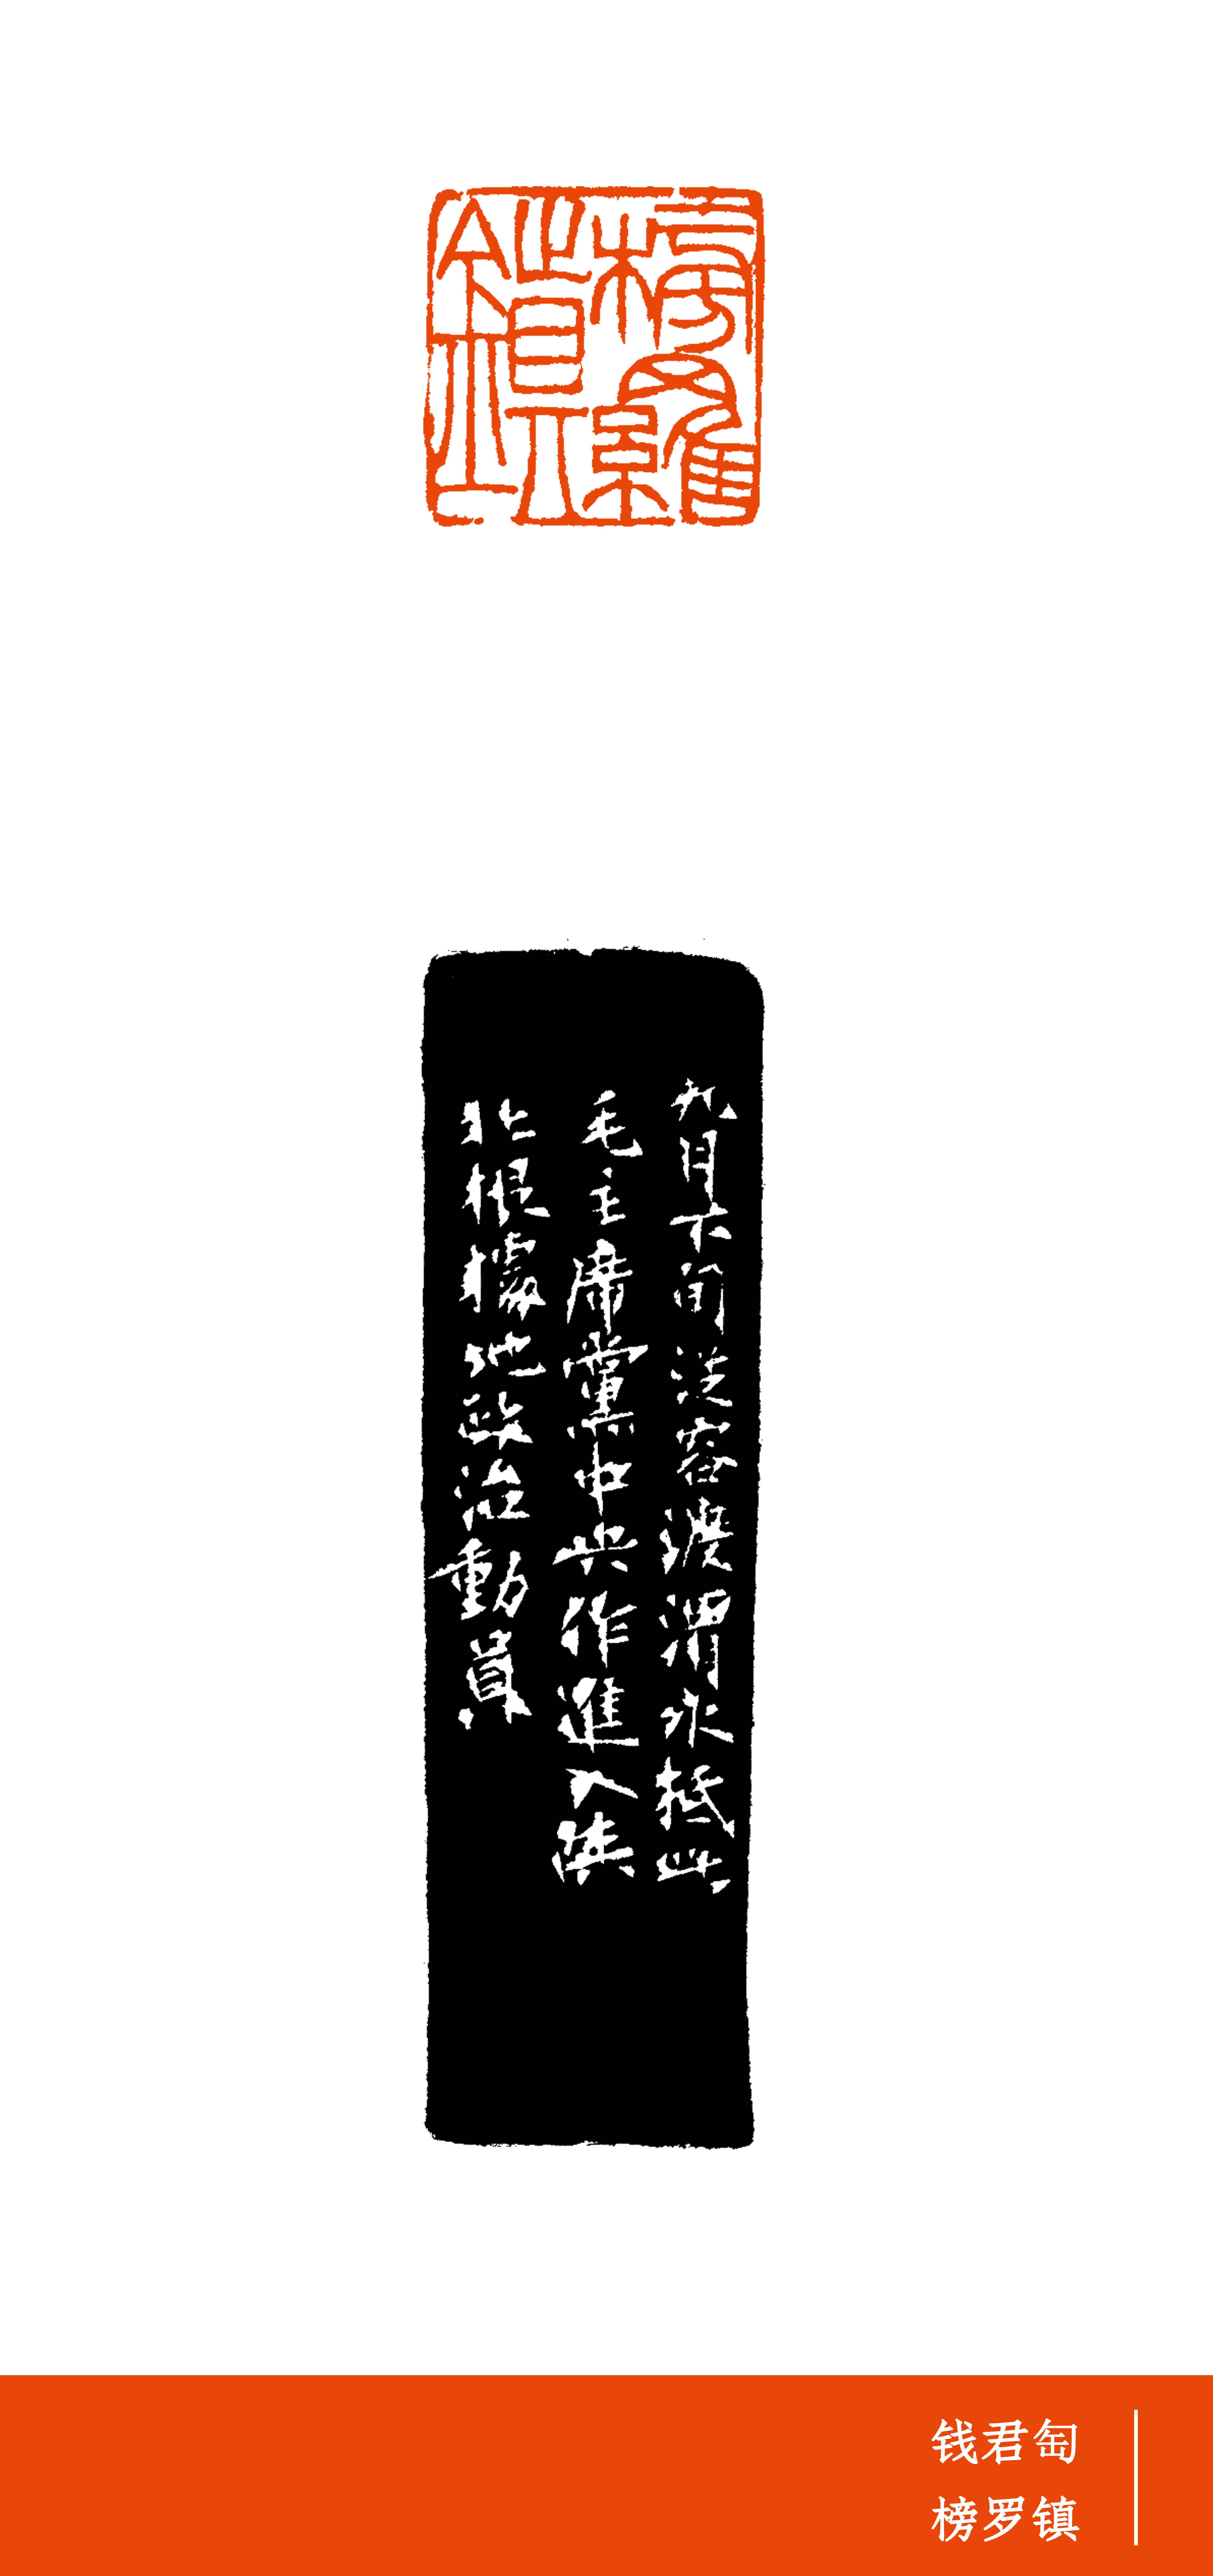 榜羅
鎮
九月下旬從容渡渭水抵此
毛主席黨中央作進入陝
北根據地政治動員
钱君匋
榜罗镇